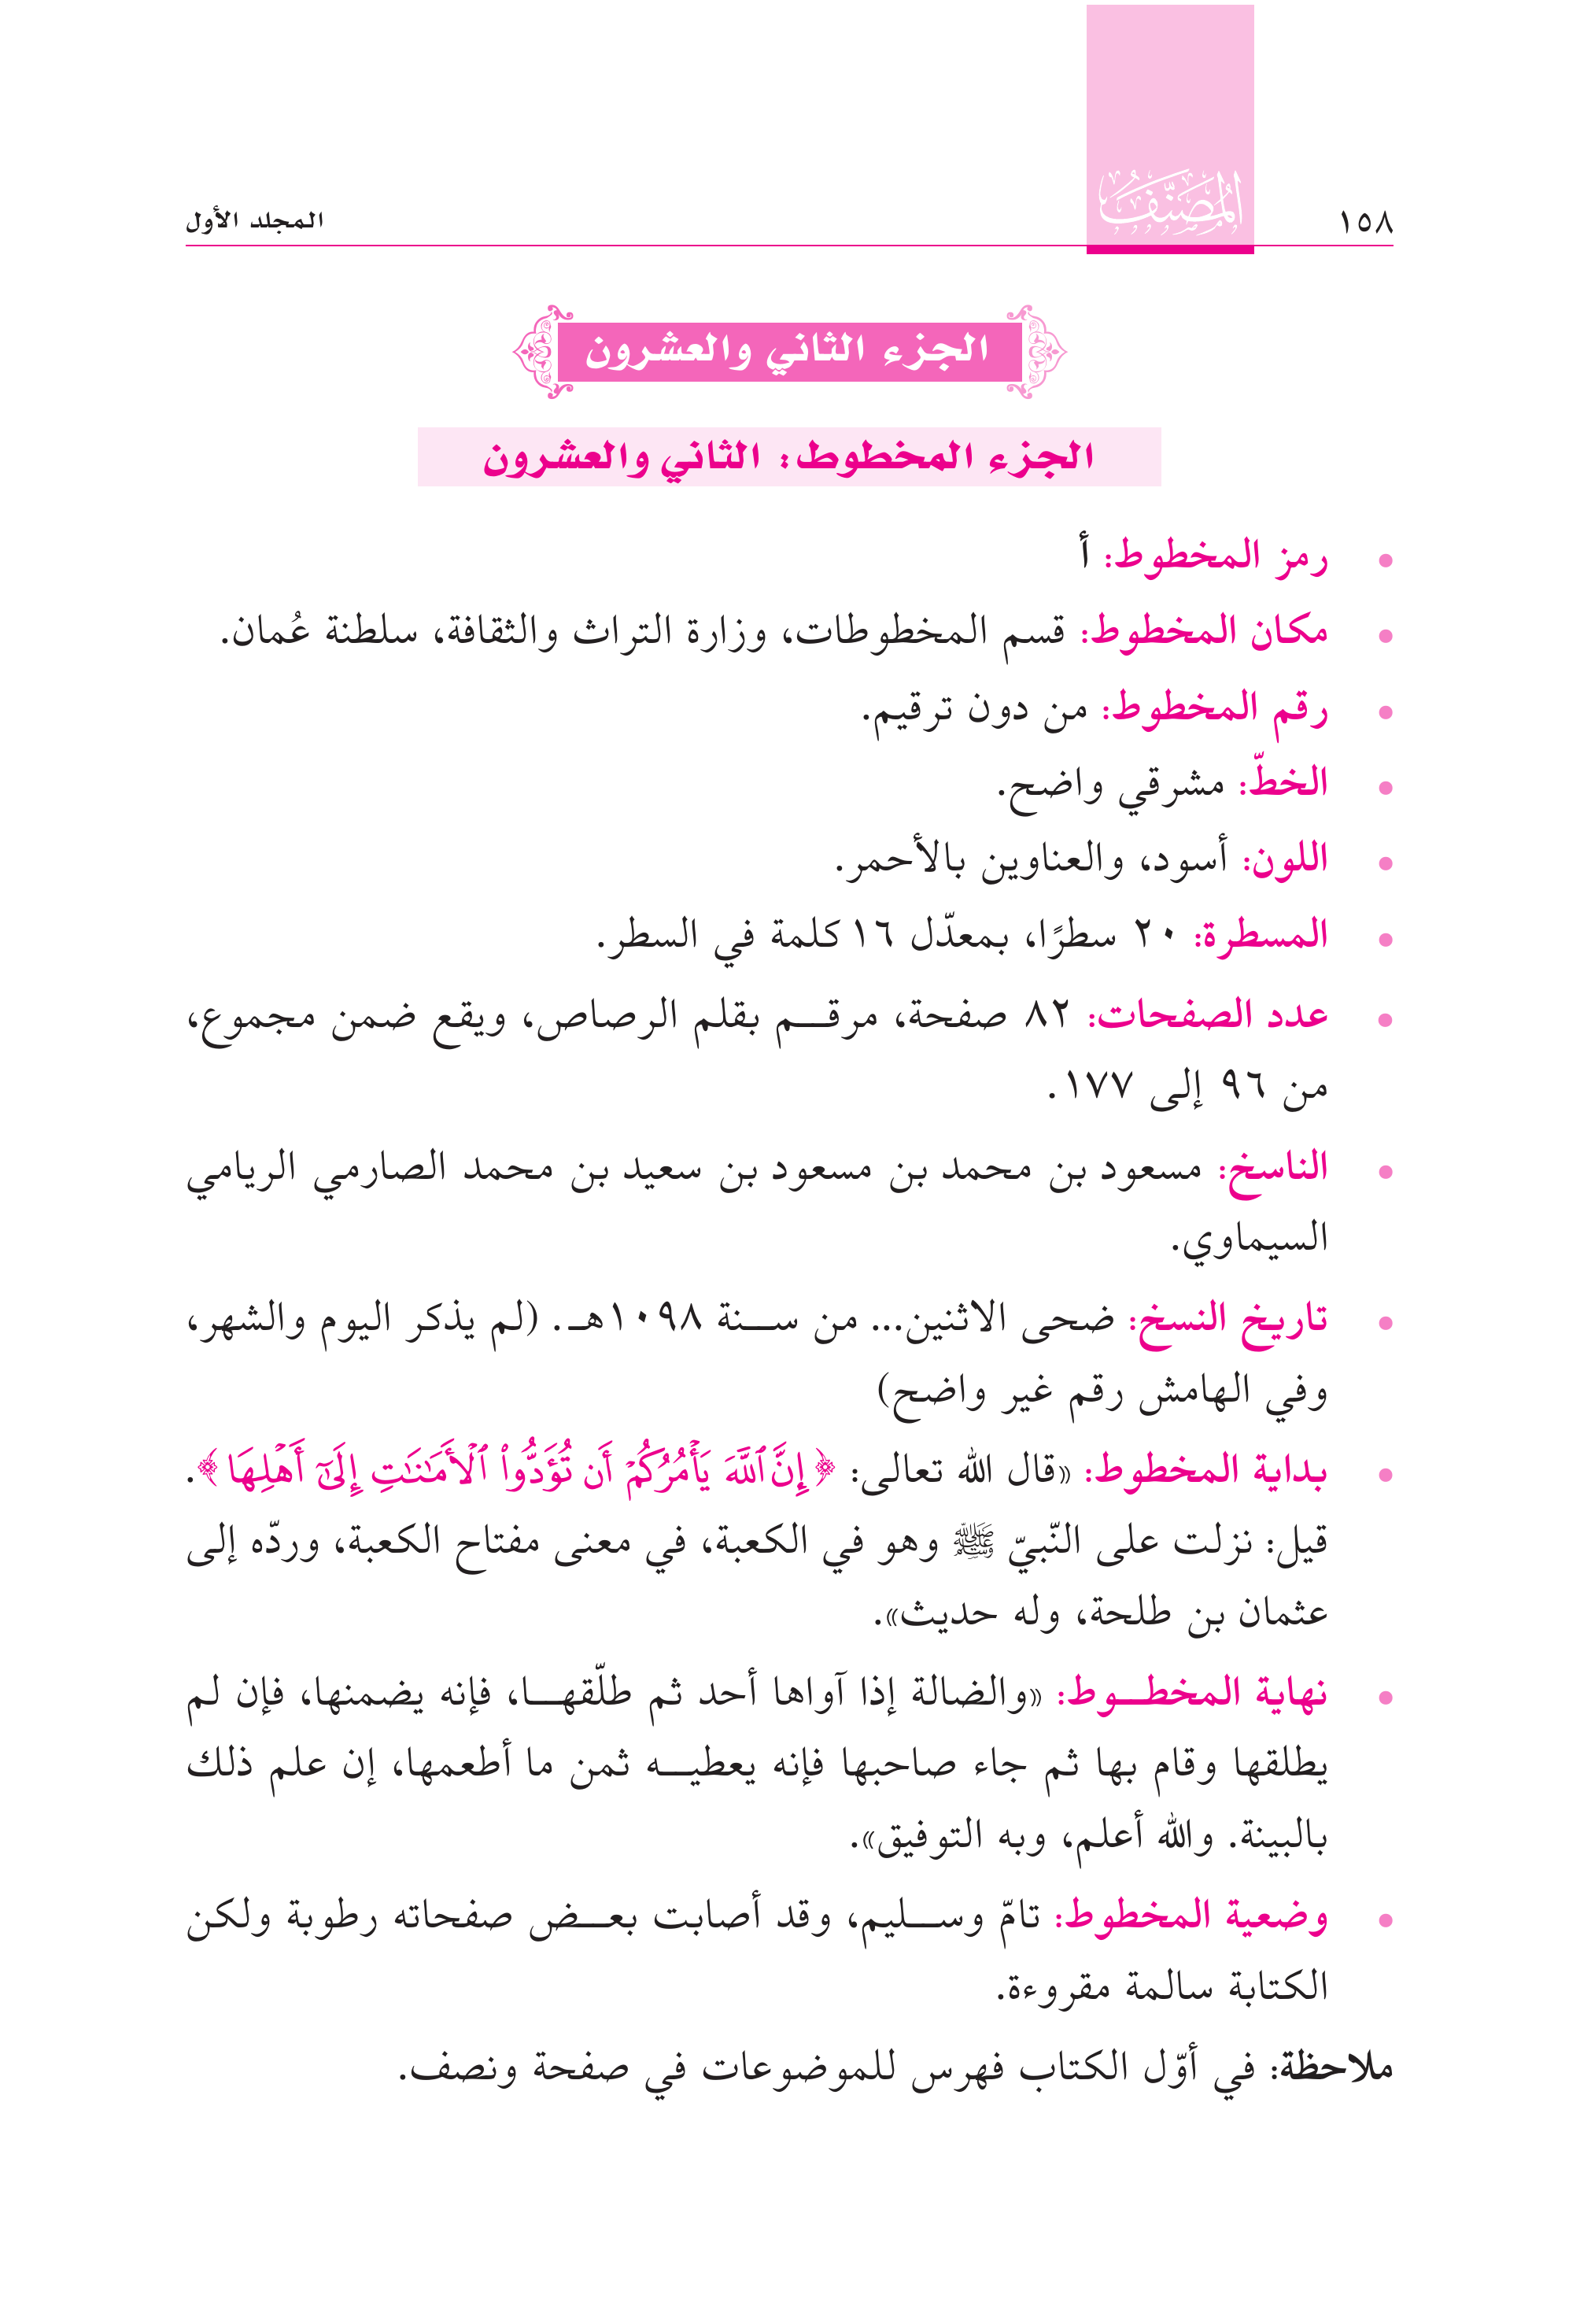 ١٥٨
المُصَنَّف
المجلد الأول
الجزء الثاني والعشرون
الجزء المخطوط: الثاني والعشرون
• رمز المخطوط: أ
• مكان المخطوط: قسم المخطوطات، وزارة التراث والثقافة، سلطنة عُمان.
• رقم المخطوط: من دون ترقيم.
• الخطّ: مشرقي واضح.
• اللون: أسود، والعناوين بالأحمر.
• المسطرة: ٢٠ سطرًا، بمعدّل ١٦ كلمة في السطر.
• عدد الصفحات: ٨٢ صفحة، مرقم بقلم الرصاص، ويقع ضمن مجموع،
من ٩٦ إلى ١٧٧.
• الناسخ: مسعود بن محمد بن مسعود بن سعيد بن محمد الصارمي الريامي
السيماوي.
• تاريخ النسخ: ضحى الاثنين... من سنة ١٠٩٨هـ. (لم يذكر اليوم والشهر،
وفي الهامش رقم غير واضح)
• بداية المخطوط: «قال الله تعالى: ﴿إِنَّ ٱللَّهَ يَأْمُرُكُمْ أَن تُؤَدُّوا۟ ٱلْأَمَـٰنَـٰتِ إِلَىٰٓ أَهْلِهَا﴾.
قيل: نزلت على النّبيّ ﷺ وهو في الكعبة، في معنى مفتاح الكعبة، وردّه إلى
عثمان بن طلحة، وله حديث».
• نهاية المخطوط: «والضالة إذا آواها أحد ثم طلّقها، فإنه يضمنها، فإن لم
يطلقها وقام بها ثم جاء صاحبها فإنه يعطيه ثمن ما أطعمها، إن علم ذلك
بالبينة. والله أعلم، وبه التوفيق».
• وضعية المخطوط: تامّ وسليم، وقد أصابت بعض صفحاته رطوبة ولكن
الكتابة سالمة مقروءة.
ملاحظة: في أوّل الكتاب فهرس للموضوعات في صفحة ونصف.